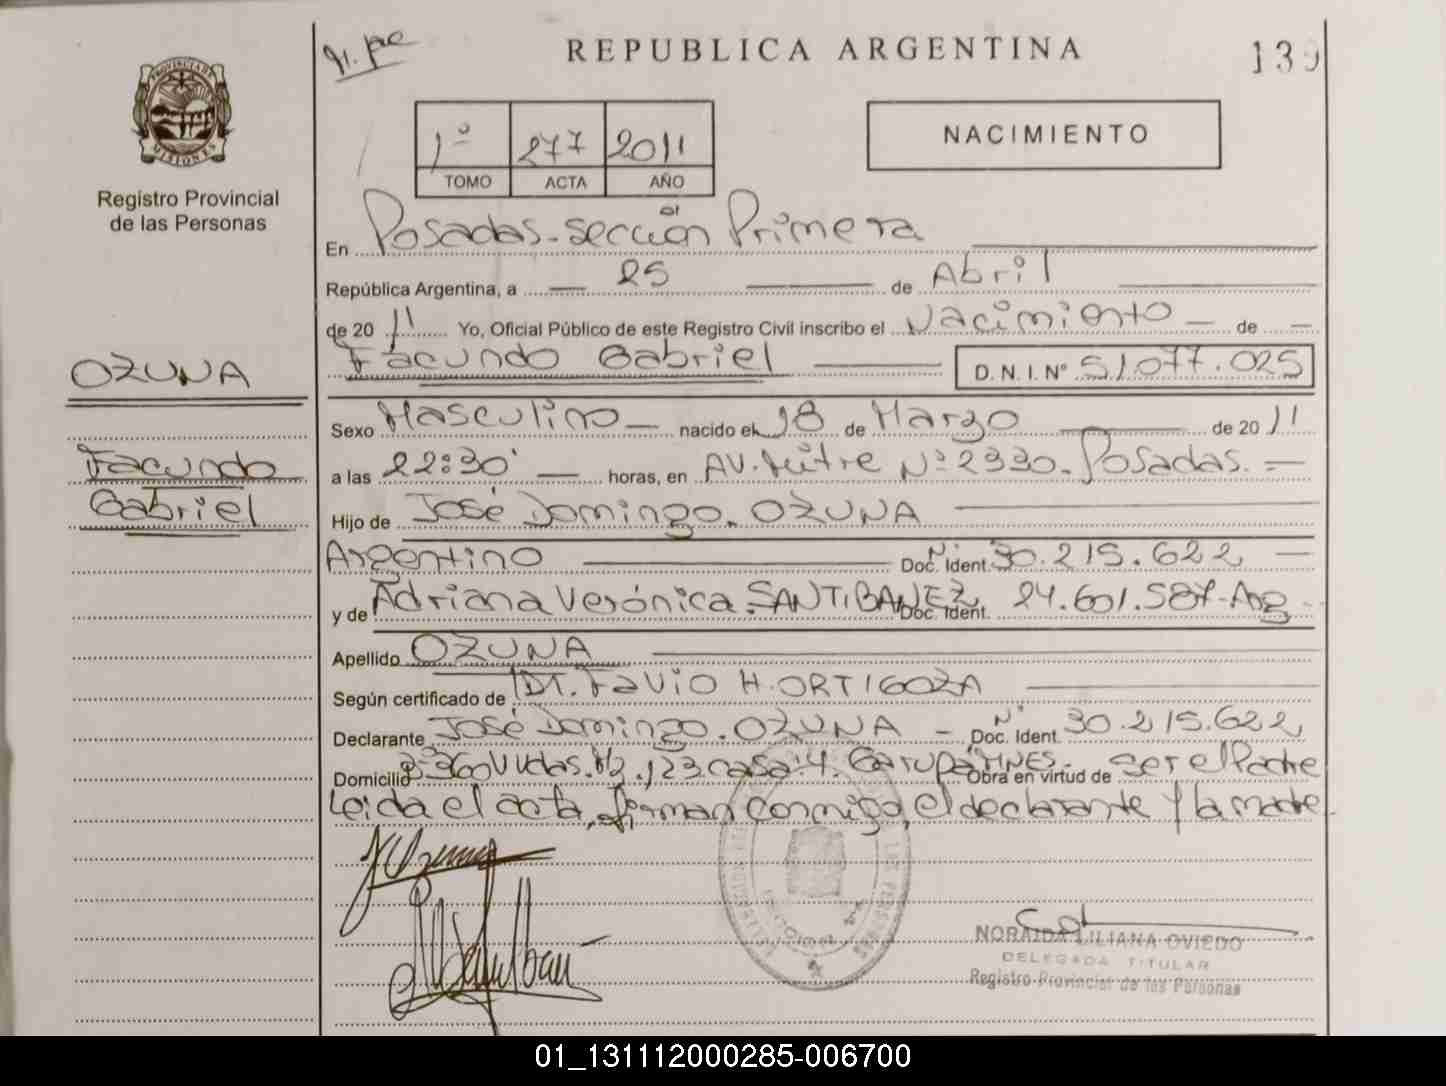 REPUBLICA ARGENTINA
139
PROVINCIA DE
MISIONES
Registro Provincial
de las Personas
1º 277 2011
TOMO ACTA AÑO
NACIMIENTO
En Posadas-sección Primera
República Argentina, a 25 de Abril
de 2011 Yo, Oficial Público de este Registro Civil inscribo el Nacimiento de
Facundo Gabriel D.N.I. Nº 51.077.025
OZUNA
Facundo
Gabriel
Sexo Masculino nacido el 18 de Marzo de 2011
a las 22:30' horas, en AV. Mitre Nº 2330. Posadas.
Hijo de José Domingo. OZUNA
Argentino Doc. Ident. Nº 30.215.622
y de Adriana Verónica. SANTIBAÑEZ Doc. Ident. 24.601.587-Arg
Apellido OZUNA
Según certificado de Dr. Favio H. ORTIGOZA
Declarante José Domingo. OZUNA Doc. Ident. Nº 30.215.622
Domicilio 360 Vvdas. 123. casa: 4. GARUPA MNES. Obra en virtud de ser el Padre
Leida el acta, firman conmigo, el declarante y la madre.
NORAIDA LILIANA OVIEDO
DELEGADA TITULAR
Registro Provincial de las Personas
01_131112000285-006700